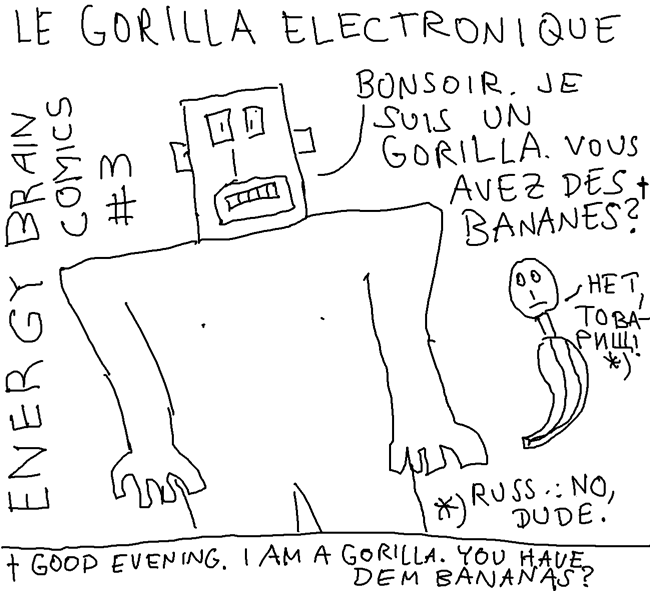 LE GORILLA ELECTRONIQUE
ENERGY BRAIN
COMICS
#3
BONSOIR. JE
SUIS UN
GORILLA. VOUS
AVEZ DES †
BANANES?
НЕТ,
ТОВА-
РИЩ!
*)
*) RUSS.: NO,
DUDE.
† GOOD EVENING. I AM A GORILLA. YOU HAVE
DEM BANANAS?